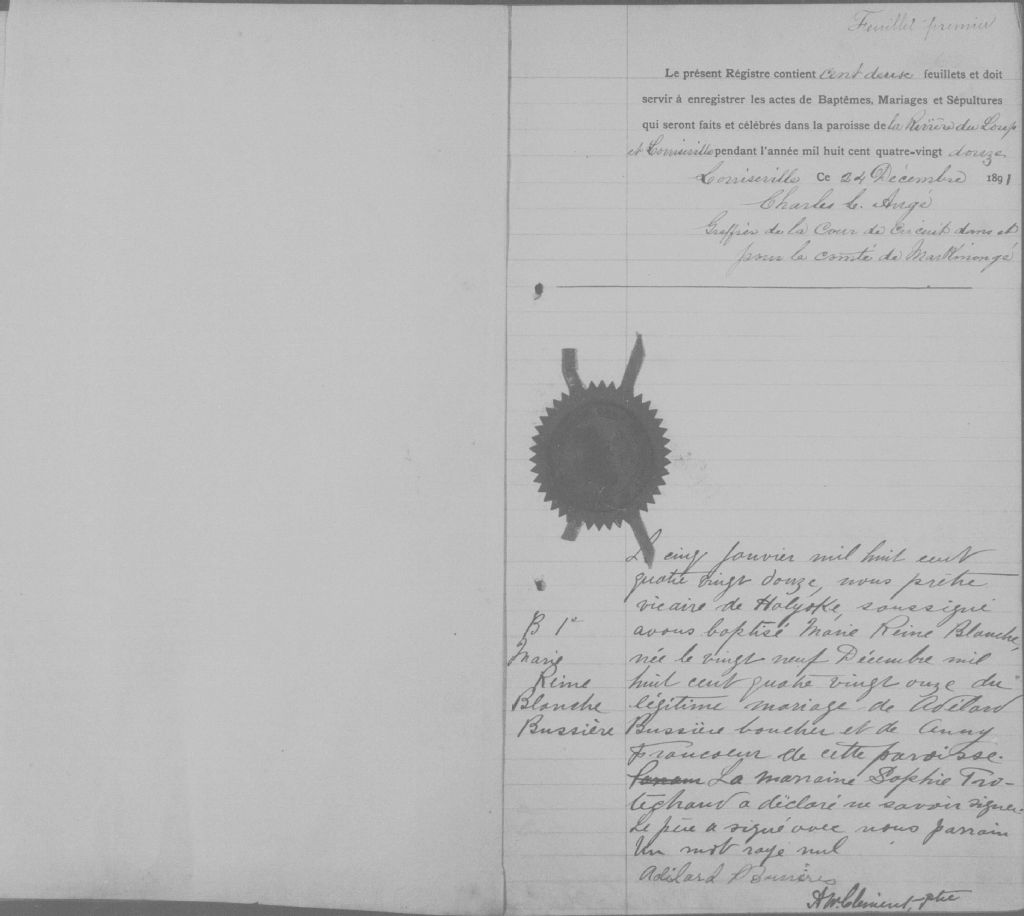 Feuillet premier
Le présent Régistre contient cent douse feuillets et doit
servir à enregistrer les actes de Baptêmes, Mariages et Sépultures
qui seront faits et célébrés dans la paroisse de la Rivière du Loup
et Louiseville pendant l'année mil huit cent quatre-vingt douze
Louiseville Ce 24 Décembre 1891
Charles L. Augé
Greffier de la Cour de Circuit dans et
pour le comté de Maskinongé
Le cinq Janvier mil huit cent
quatre vingt douze, nous prêtre
vicaire de Holyoke, soussigné
B 1e
avons baptisé Marie Reine Blanche,
Marie
née le vingt neuf Décembre mil
Reine
huit cent quatre vingt onze du
Blanche
légitime mariage de Adélard
Bussière
Bussière boucher et de Anny
Francoeur de cette paroisse.
La marraine Sophie Tro-
téchaud a déclaré ne savoir signer.
Le père a signé avec nous parrain
Un mot rayé nul
Adélard Bussières
A. W. Clément, ptre